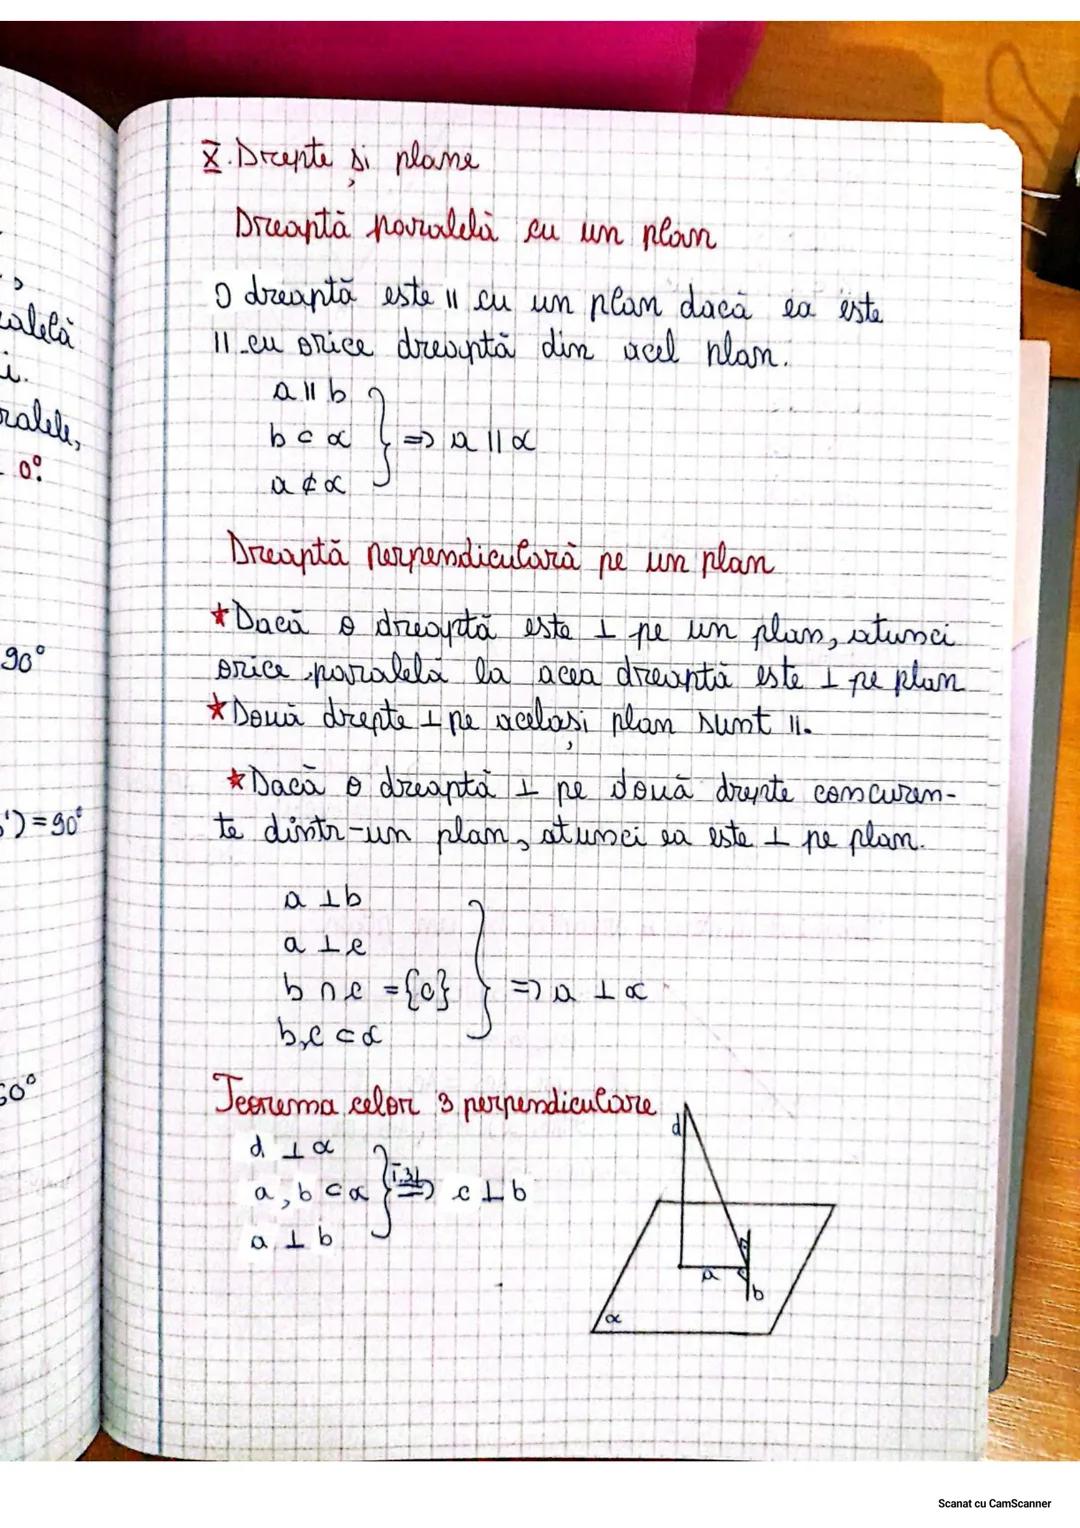 X. Drepte și plane
Dreaptă paralelă cu un plan
O dreaptă este || cu un plan dacă ea este
|| cu orice dreaptă din acel plan.
a || b
b ⊂ α } => a || α
a ⊄ α
Dreaptă perpendiculară pe un plan
* Dacă o dreaptă este ⊥ pe un plan, atunci
orice paralelă la acea dreaptă este ⊥ pe plan
* Două drepte ⊥ pe același plan sunt ||.
* Dacă o dreaptă ⊥ pe două drepte concuren-
te dintr-un plan, atunci ea este ⊥ pe plan.
a ⊥ b
a ⊥ c
b ∩ c = {o} } => a ⊥ α
b, c ⊂ α
Teorema celor 3 perpendiculare
d ⊥ α
a, b ⊂ α } T.3⊥ => c ⊥ b
a ⊥ b
d
a
b
α
ralelă
i.
ralele,
0°.
90°
') = 90°
60°
Scanat cu CamScanner